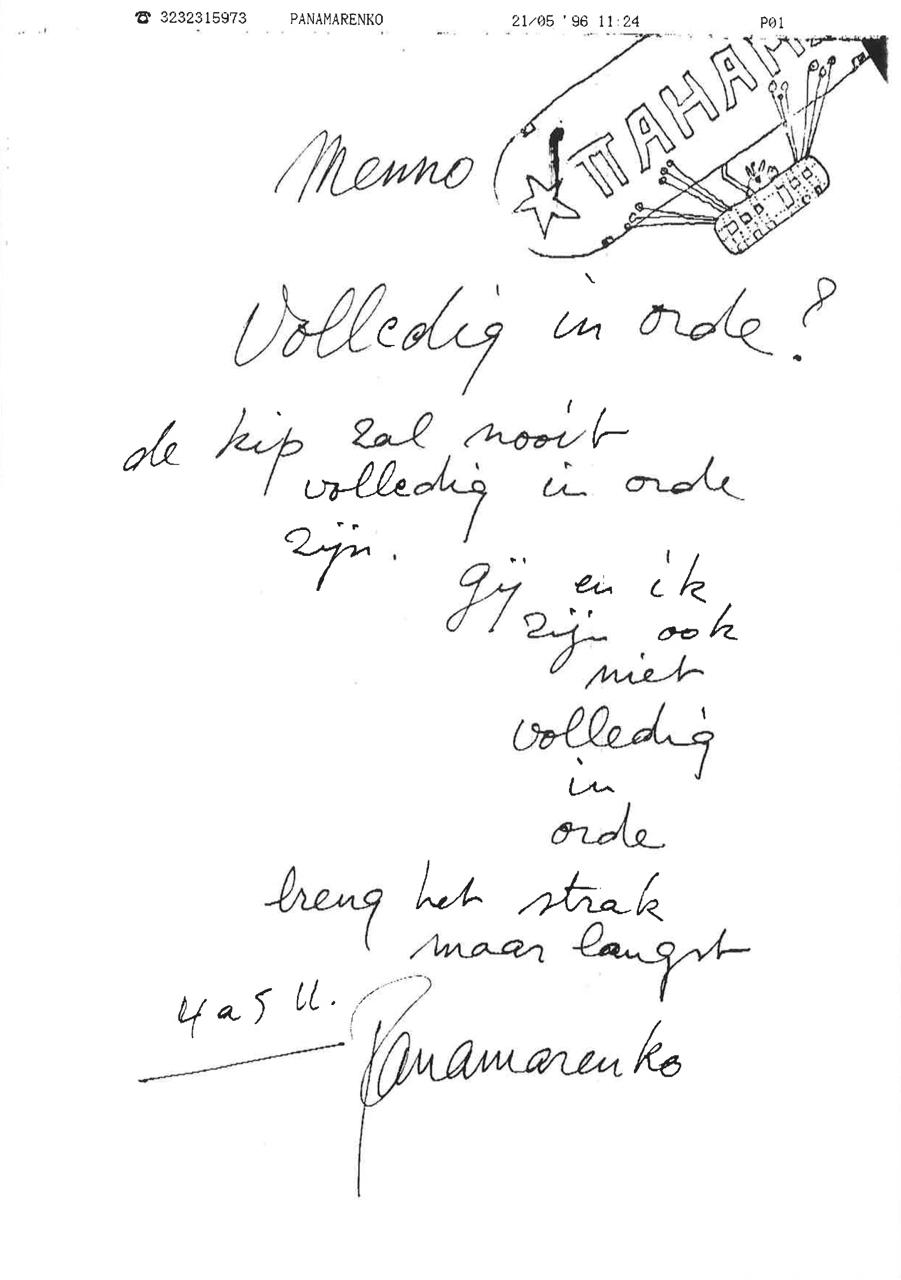 ☎ 3232315973 PANAMARENKO 21/05 '96 11:24 P01
ПАНАМА
Menno
Volledig in orde?
de kip zal nooit
volledig in orde
zijn.
Gij en ik
zijn ook
niet
volledig
in
orde
breng het strak
maar langst
4 a 5 U.
Panamarenko